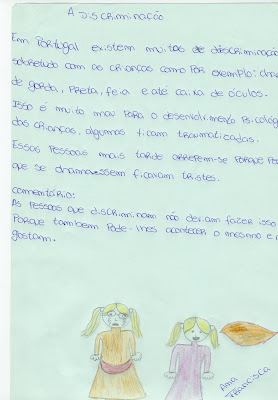 A Discriminação
Em Portugal existem muitas de discriminação
sobretudo com as crianças como por exemplo:
de gorda, preta, feia e até caixa de óculos.
Isso é muito mau para o desenvolvimento psicológ
das crianças, algumas ficam traumatizadas.
Essas pessoas mais tarde porque
que se chamassem ficavam tristes.
comentário:
As pessoas que discriminam não deviam fazer isso
Porque tambem pode-lhes acontecer o mesmo e
gostam.
Ana
Francisca